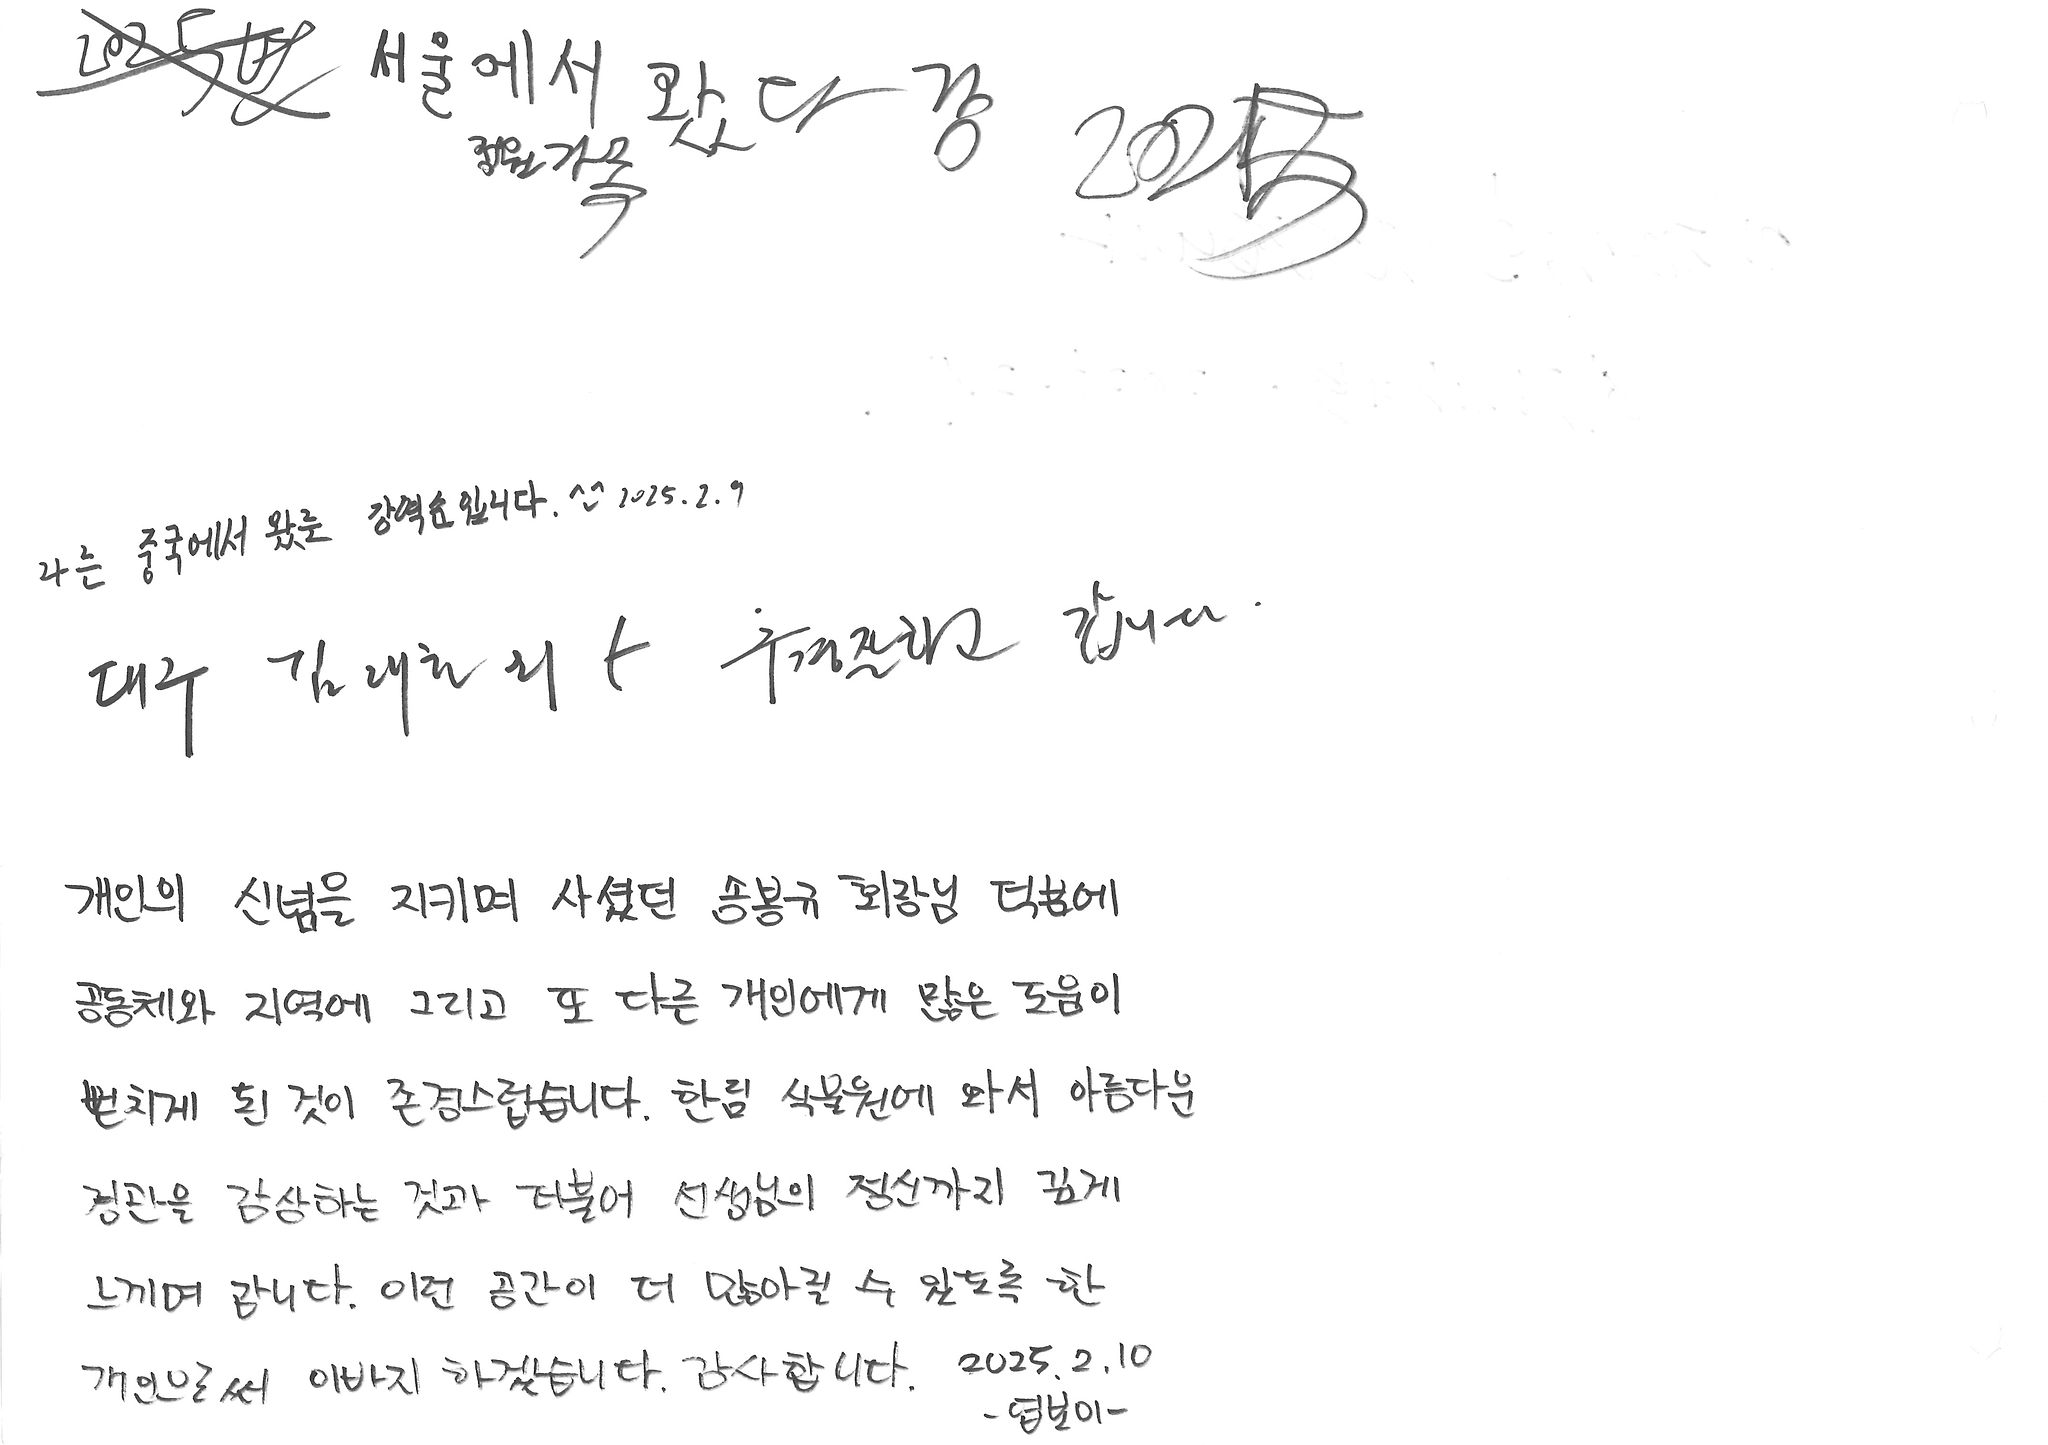 서울에서 왔다 경 2025
가족
나는 중국에서 왔는 강역순입니다. ^^ 2025. 2. 9
대구 김대현 외 구경잘하고 갑니다.
개인의 신념을 지키며 사셨던 송봉규 회장님 덕분에
공동체와 지역에 그리고 또 다른 개인에게 많은 도움이
뻗치게 된 것이 존경스럽습니다. 한림 식물원에 와서 아름다운
경관을 감상하는 것과 더불어 선생님의 정신까지 깊게
느끼며 갑니다. 이런 공간이 더 많아질 수 있도록 한
개인으로써 이바지 하겠습니다. 감사합니다. 2025. 2. 10